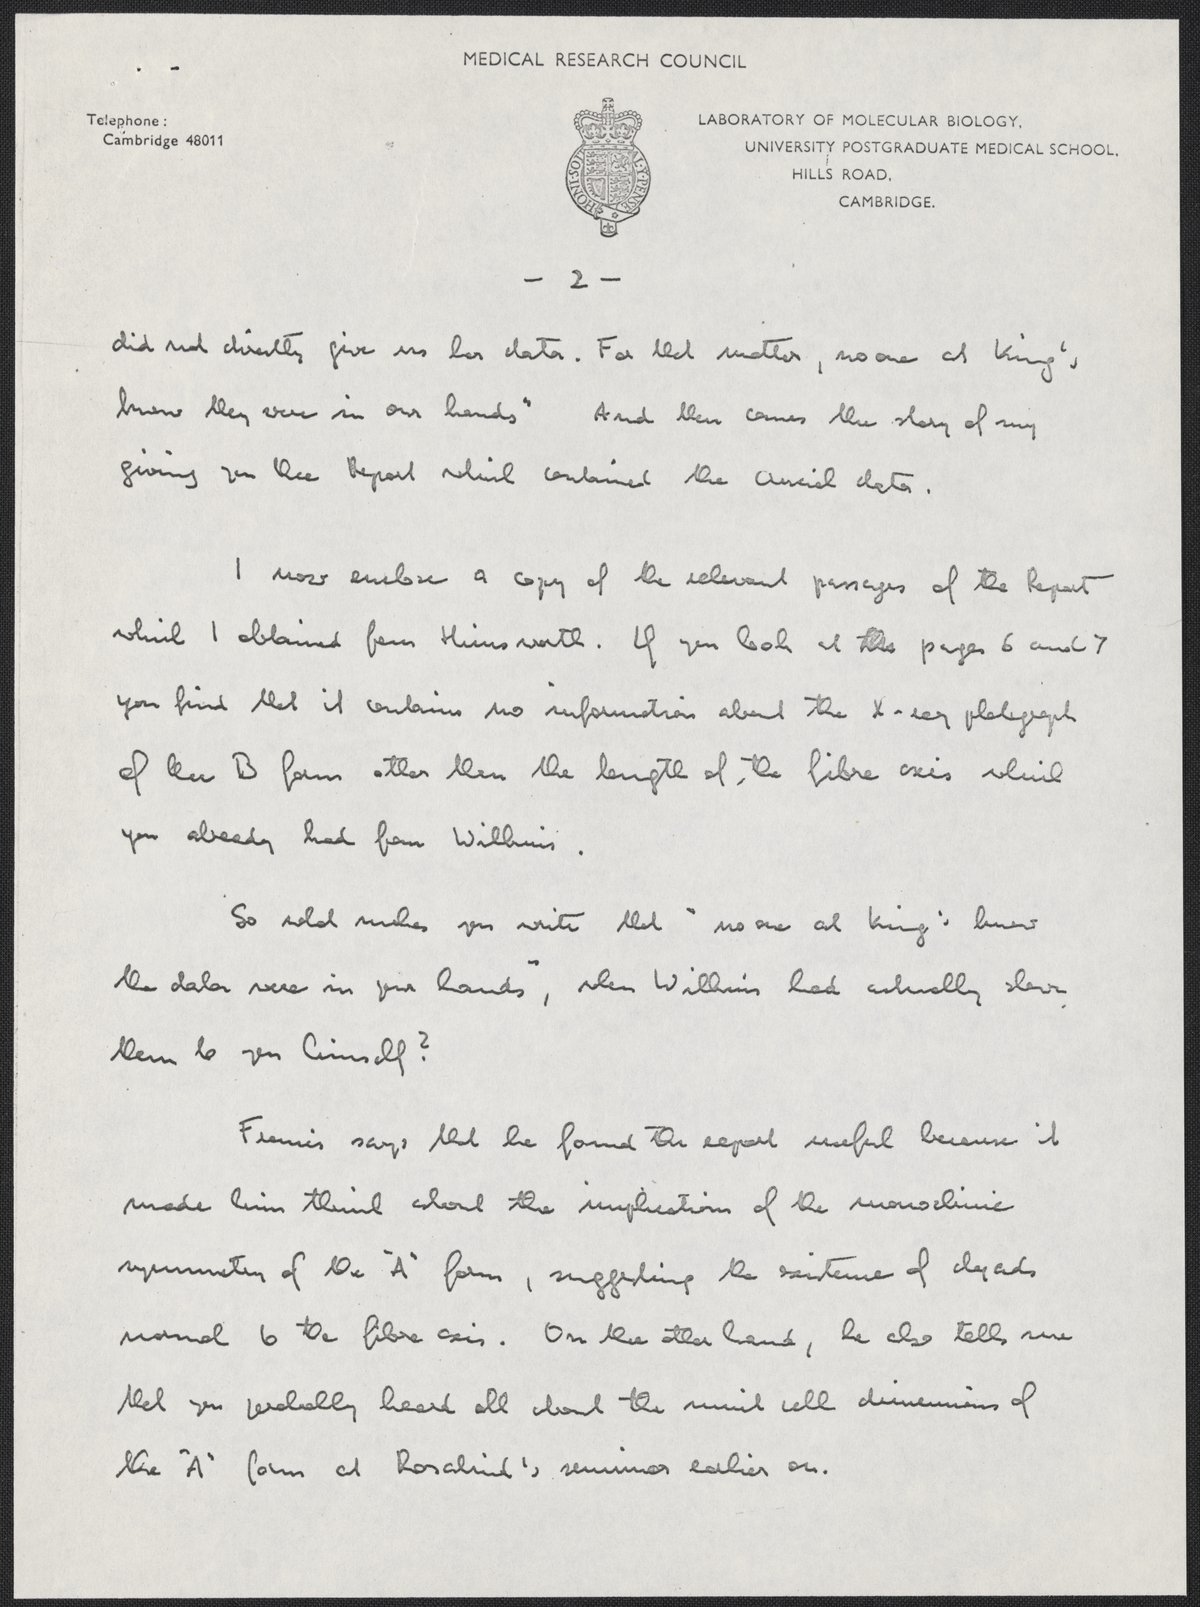 MEDICAL RESEARCH COUNCIL
Telephone:
Cambridge 48011
LABORATORY OF MOLECULAR BIOLOGY,
UNIVERSITY POSTGRADUATE MEDICAL SCHOOL,
HILLS ROAD,
CAMBRIDGE.
HONI·SOIT·MAL·Y·PENSE
— 2 —
did not directly give us her data. For that matter, no one at King's
knew they were in our hands" And then comes the story of my
giving you the Report which contained the crucial data.
I now enclose a copy of the relevant passages of the Report
which I obtained from Himsworth. If you look at the pages 6 and 7
you find that it contains no information about the X-ray photograph
of the B form other than the length of the fibre axis which
you already had from Wilkins.
So what makes you write that "no one at King's knew
the data were in your hands", when Wilkins had actually shown
them to you himself?
Francis says that he found the report useful because it
made him think about the implications of the monoclinic
symmetry of the "A" form, suggesting the existence of dyads
normal to the fibre axis. On the other hand, he also tells me
that you probably heard all about the unit cell dimensions of
the "A" form at Rosalind's seminar earlier on.